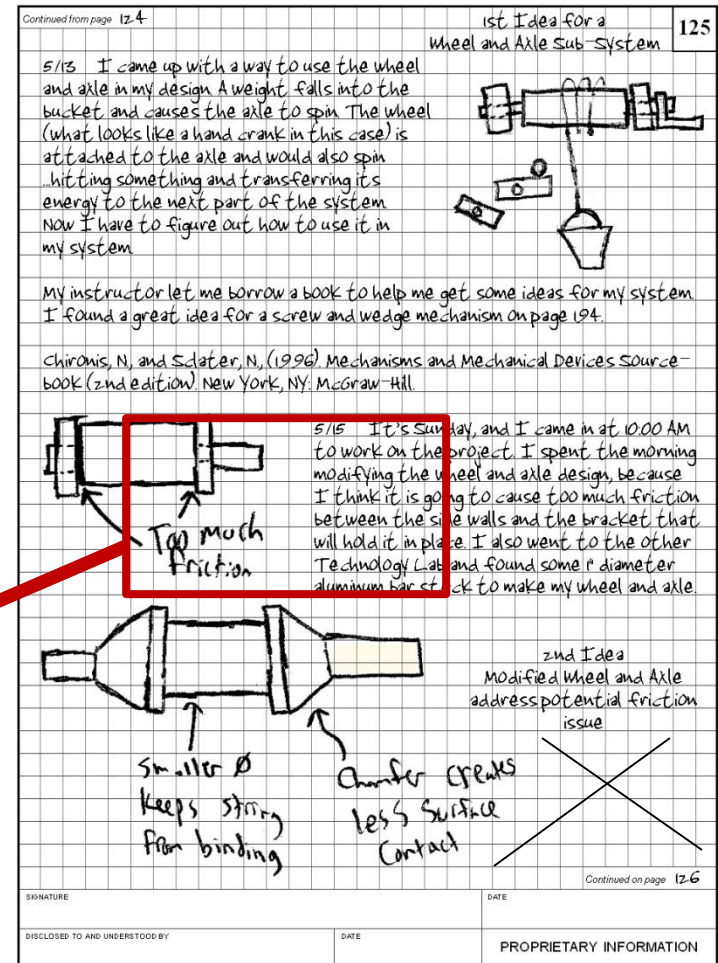 Continued from page 124
1st Idea for a
Wheel and Axle Sub-System
125
5/13 I came up with a way to use the wheel
and axle in my design. A weight falls into the
bucket and causes the axle to spin. The wheel
(what looks like a hand crank in this case) is
attached to the axle and would also spin
...hitting something and transferring its
energy to the next part of the system
Now I have to figure out how to use it in
my system
My instructor let me borrow a book to help me get some ideas for my system
I found a great idea for a screw and wedge mechanism on page 194.
Chironis, N, and Sclater, N, (1996). Mechanisms and Mechanical Devices Source-
book (2nd edition). New York, NY: McGraw-Hill.
5/15 It's Sunday, and I came in at 10:00 AM
to work on the project. I spent the morning
modifying the wheel and axle design, because
I think it is going to cause too much friction
between the side walls and the bracket that
will hold it in place. I also went to the other
Technology Lab and found some 1" diameter
aluminum bar stock to make my wheel and axle.
Too much
friction
2nd Idea
Modified Wheel and Axle
address potential friction
issue
Smaller Ø
Keeps string
from binding
Chamfer creates
less surface
contact
Continued on page 126
SIGNATURE
DATE
DISCLOSED TO AND UNDERSTOOD BY
DATE
PROPRIETARY INFORMATION